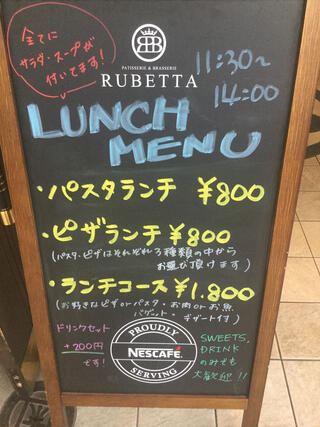 全てに
サラダ・スープが
付いてます!
RB
PATISSERIE & BRASSERIE
RUBETTA
11:30〜
14:00
LUNCH
MENU
・パスタランチ ¥800
・ピザランチ ¥800
(パスタ・ピザはそれぞれ3種類の中から
お選び頂けます)
・ランチコース ¥1.800
(お好きなピザorパスタ・お肉orお魚
バゲット・デザート付)
ドリンクセット
+200円
です!
PROUDLY
NESCAFÉ
SERVING
SWEETS,
DRINK
のみでも
大歓迎!!